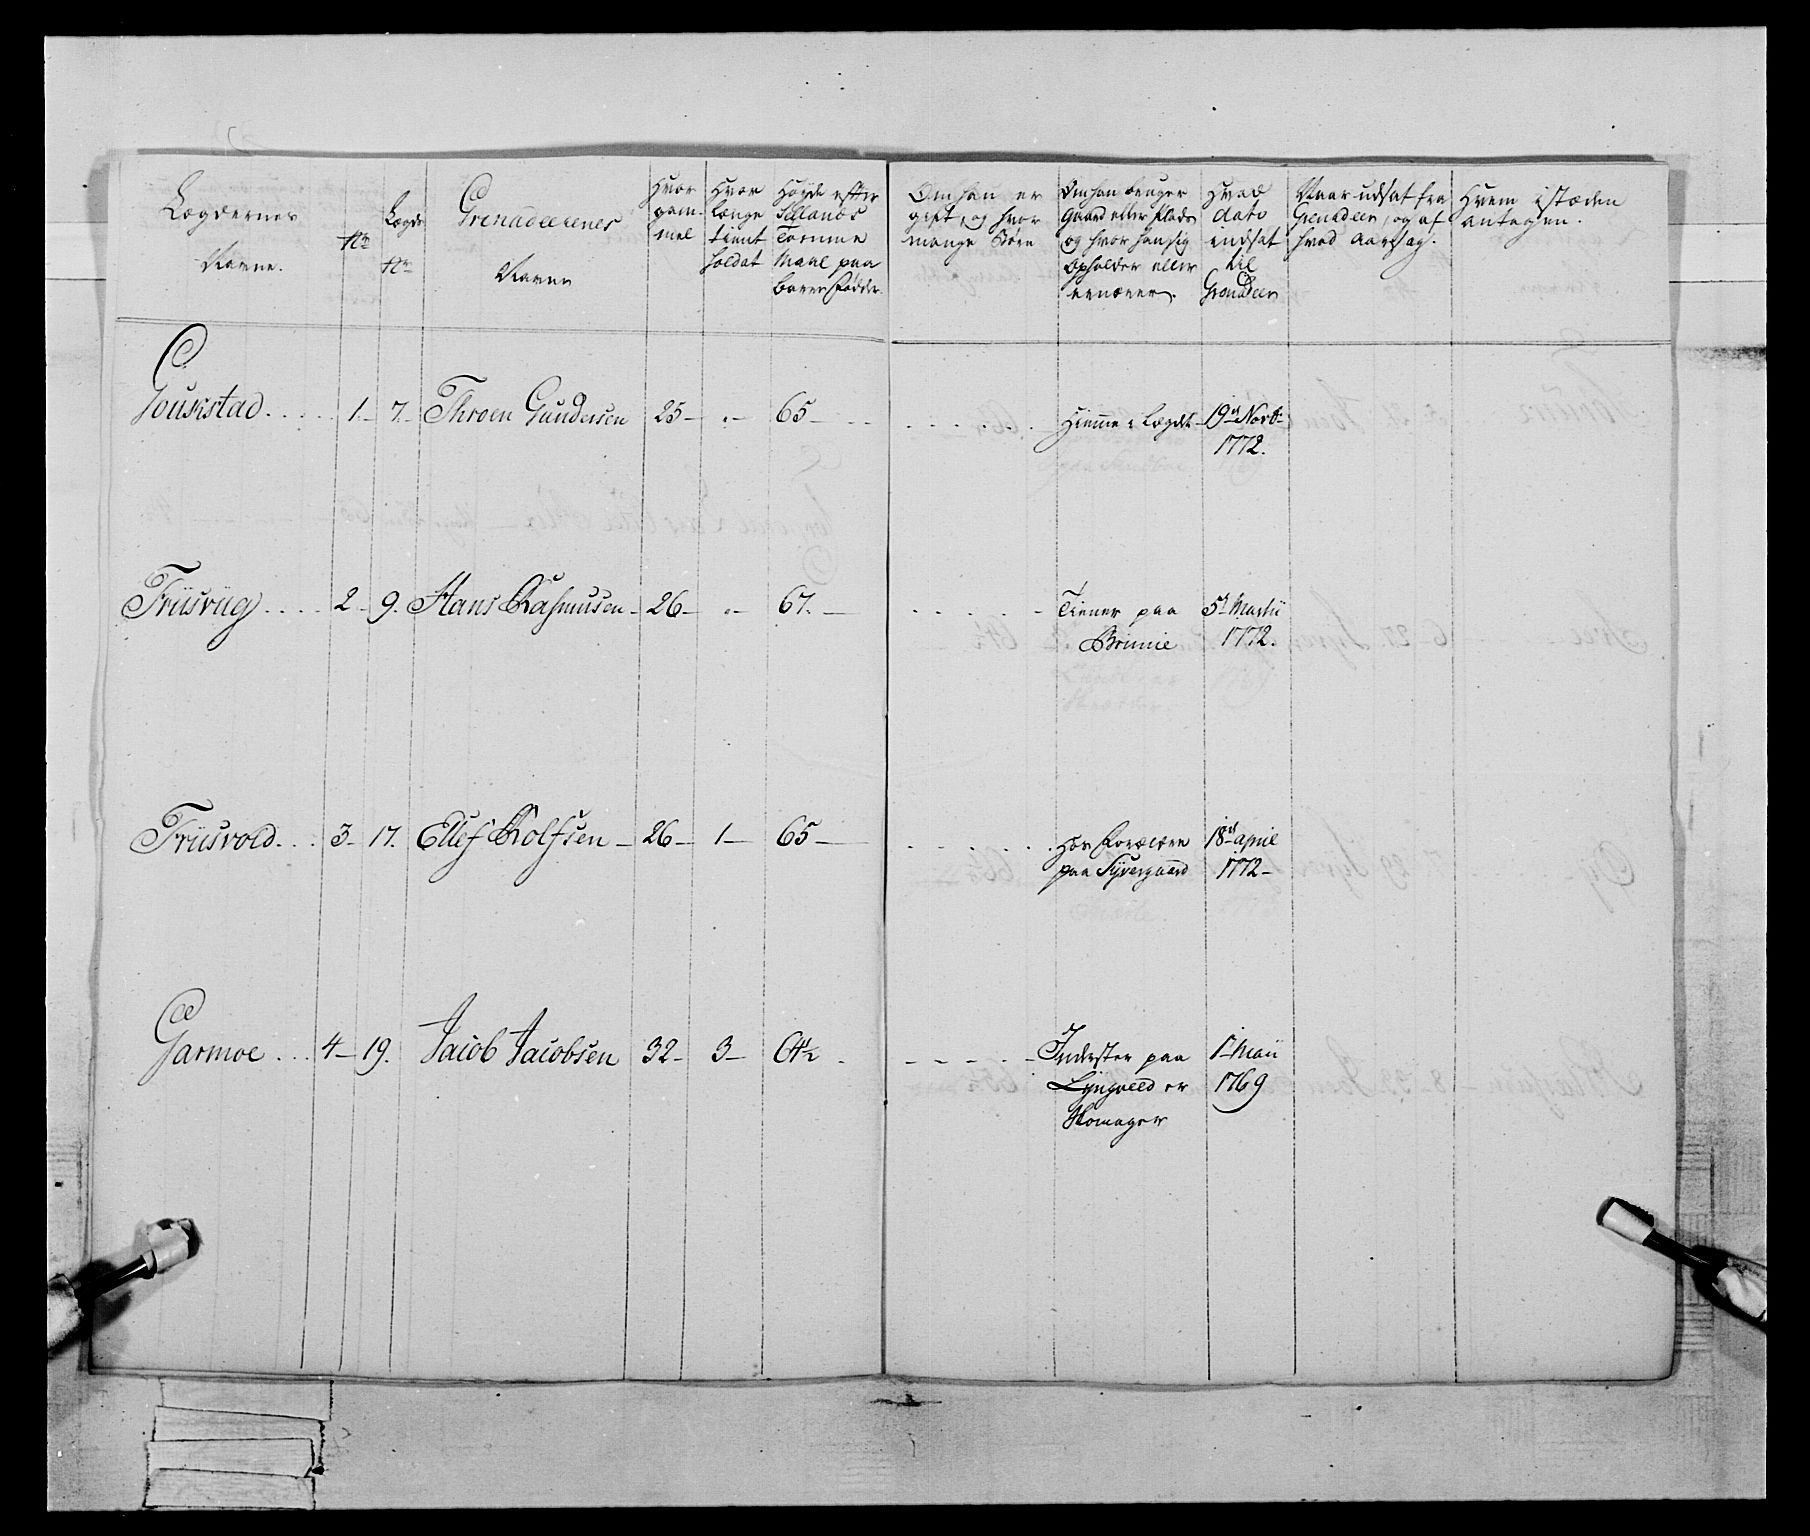 Lægdernes
Navne.
Nr
Lægds
Nr
Grenadeerenes
Navne
Hvor
gam-
mel
Hvor
længe
tient
Soldat
Høyde efter
Sællands
Tomme
Maal paa
bare Fødder.
Om han er
gift, og hvor
mange Børn
Om han bruger
Gaard eller Plads
og hvor han sig
opholder eller
ernærer.
Hvad
dato
indsat
til
Grenadeer
Naar udsat fra
Grenadeer, og af
hvad Aarsag.
Hvem i stæden
antagen.
Gouskstad. . . . . 1. 7. Throen Gundersen 25 - „ - 65 - . . . . . . . . Hiemme i Lægdet 19d Novb:
1772.
Friisvüg . . . . 2 - 9. Hans Rasmussen - 26 - „ - 67. - . . . . . - Tiener paa 5t Martii
Brimie 1772.
Friisvold. . . 3 - 17. Ellef Rolfsen - 26 - 1 - 65 - . . . . . . Hos Forældre 18d april
paa Syvergaard 1772 -
Garmoe . . . 4 - 19. Jacob Jacobsen 32 - 3 - 64½ . - - - - - Inderster paa 1t Maii
Lyngveed er 1769
Skomager